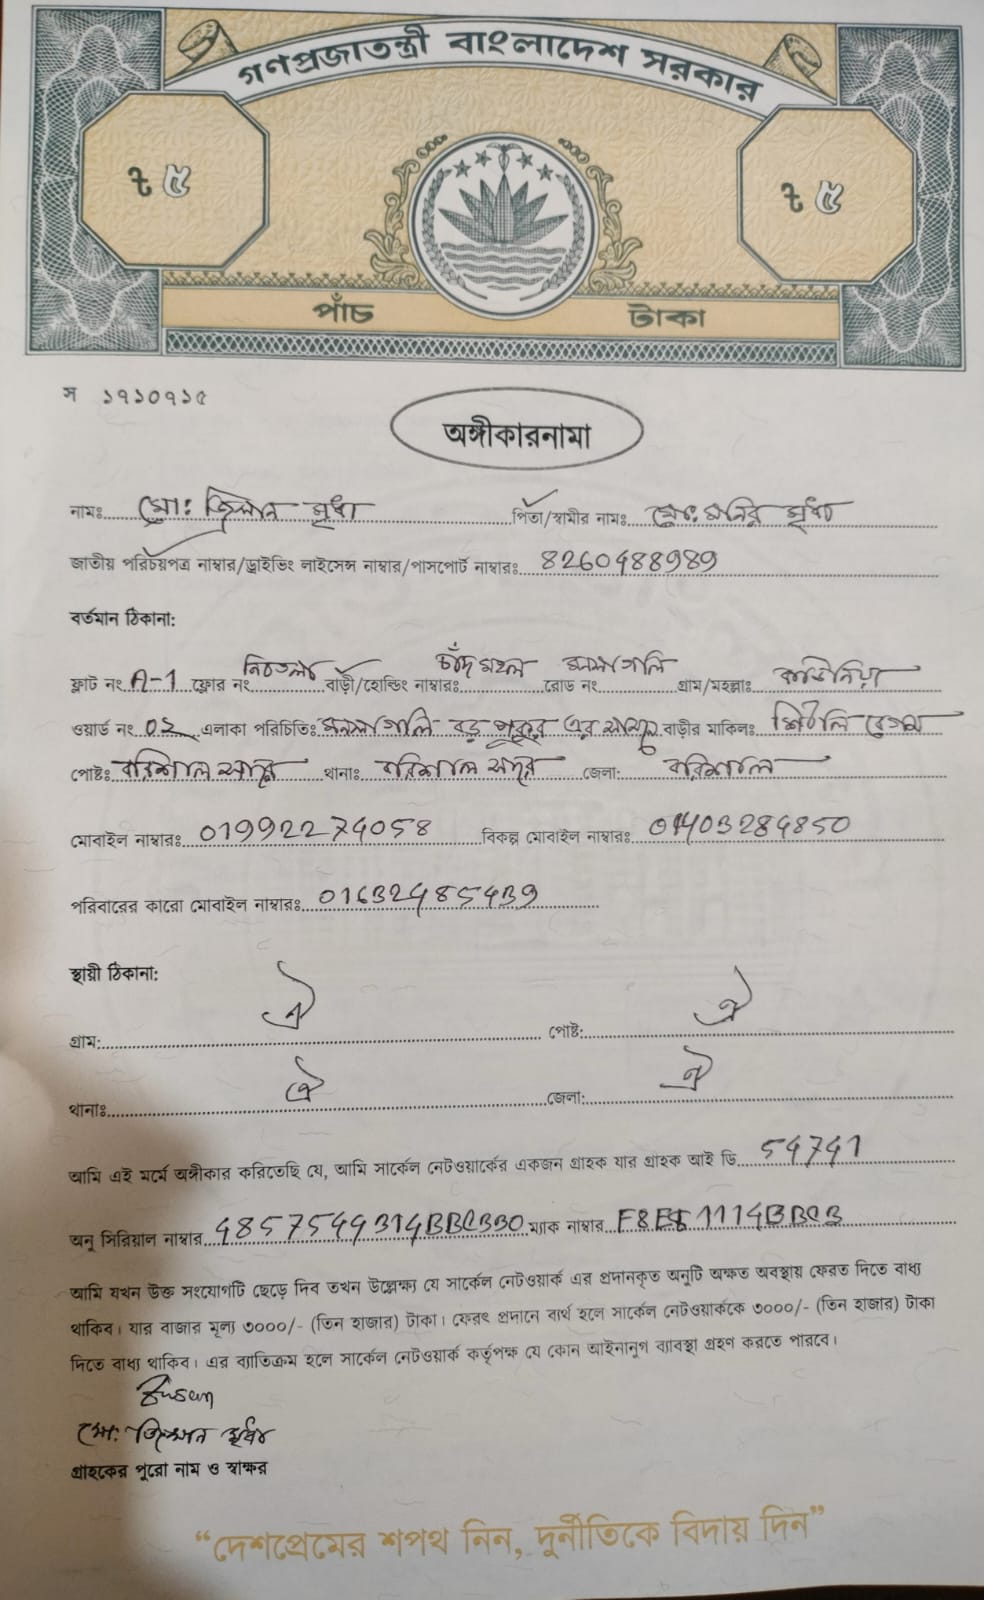 গণপ্রজাতন্ত্রী বাংলাদেশ সরকার
ট ৫ ট ৫
পাঁচ টাকা
স ১৭১০৭১৫
অঙ্গীকারনামা
নামঃ মো: মৃধা পিতা/স্বামীর নামঃ মো: মনির মৃধা
জাতীয় পরিচয়পত্র নাম্বার/ড্রাইভিং লাইসেন্স নাম্বার/পাসপোর্ট নাম্বারঃ 8260488989
বর্তমান ঠিকানা:
ফ্লাট নং A-1 ফ্লোর নং নিচতলা বাড়ী/হোল্ডিং নাম্বারঃ চাঁদ মহল রোড নং গলি গ্রাম/মহল্লাঃ
ওয়ার্ড নং 02 এলাকা পরিচিতিঃ গলি বড় পুকুর এর সামনে বাড়ীর মালিকঃ শিউলি বেগম
পোষ্টঃ বরিশাল সদর থানাঃ বরিশাল সদর জেলা: বরিশাল
মোবাইল নাম্বারঃ 01992274058 বিকল্প মোবাইল নাম্বারঃ 01403284850
পরিবারের কারো মোবাইল নাম্বারঃ 01632485439
স্থায়ী ঠিকানা:
গ্রাম: ঐ পোষ্ট: ঐ
থানাঃ ঐ জেলা: ঐ
আমি এই মর্মে অঙ্গীকার করিতেছি যে, আমি সার্কেল নেটওয়ার্কের একজন গ্রাহক যার গ্রাহক আই ডি 54741
অনু সিরিয়াল নাম্বার 4857544314BBCB30 ম্যাক নাম্বার
আমি যখন উক্ত সংযোগটি ছেড়ে দিব তখন উল্লেক্ষ্য যে সার্কেল নেটওয়ার্ক এর প্রদানকৃত অনুটি অক্ষত অবস্থায় ফেরত দিতে বাধ্য
থাকিব। যার বাজার মূল্য ৩০০০/- (তিন হাজার) টাকা। ফেরৎ প্রদানে ব্যর্থ হলে সার্কেল নেটওয়ার্ককে ৩০০০/- (তিন হাজার) টাকা
দিতে বাধ্য থাকিব। এর ব্যতিক্রম হলে সার্কেল নেটওয়ার্ক কর্তৃপক্ষ যে কোন আইনানুগ ব্যাবস্থা গ্রহণ করতে পারবে।
মো: মৃধা
গ্রাহকের পুরো নাম ও স্বাক্ষর
“দেশপ্রেমের শপথ নিন, দুর্নীতিকে বিদায় দিন”